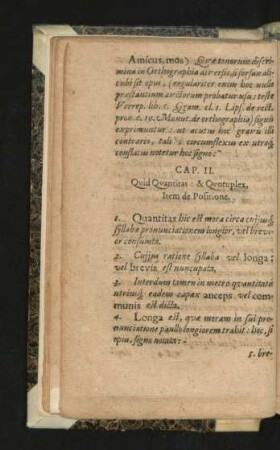 Amicus, mos) Quæ tonorum discri-
mina in Orthographia diversis, si forsan ali-
cubi sit opus, (regulariter enim hoc nullo
præstantium auctorum probatur usu: teste
Verrep. lib. Gram. el. 1. Lips. de rect.
pron. c. 19. Manut. de orthographia) signis
exprimuntur: ut acutus hoc gravis illi
contrario, tali circumflexus ex utroq;
conflatus notetur hoc signo:
CAP. II.
Quid Quantitas: & Quotuplex.
Item de Positione.
1. Quantitas hic est mora circa cujusq;
syllabæ pronunciationem longior, vel brevi-
or consumta.
2. Cujus ratione syllaba vel longa;
vel brevis est nuncupata.
3. Interdum tamen in metro quantitatis
utriusq; eadem capax anceps vel com-
munis est dicta.
4. Longa est, quæ moram in sui pro-
nunciatione paullo longiorem trahit: hoc, si
opus, signo notata:
5. bre-